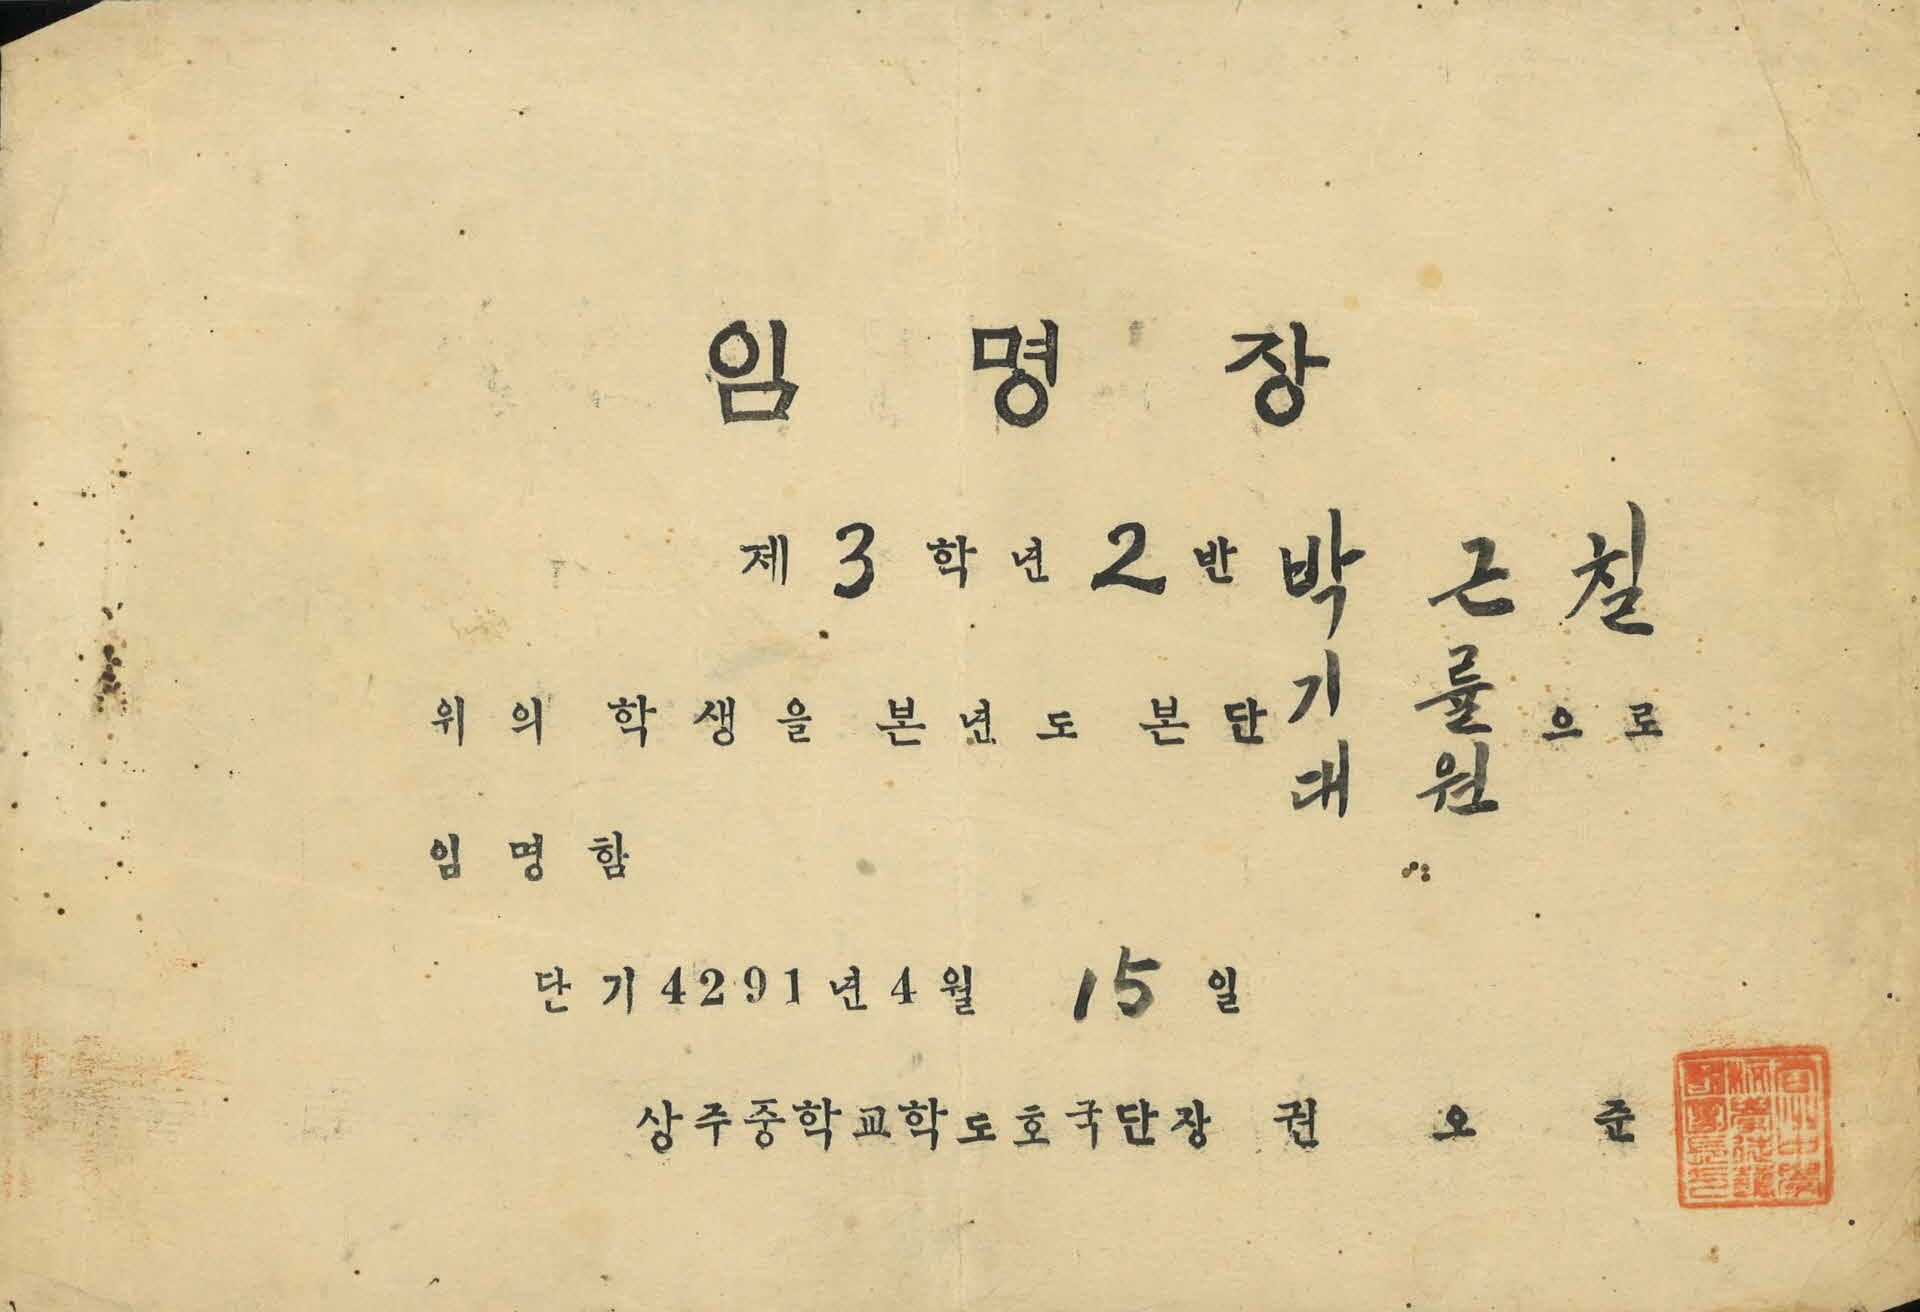 임명장
제 3 학년 2 반 박근칠
위의 학생을 본년도 본단 기률대원 으로
임명함
단기 4291년 4월 15일
상주중학교학도호국단장 권오준